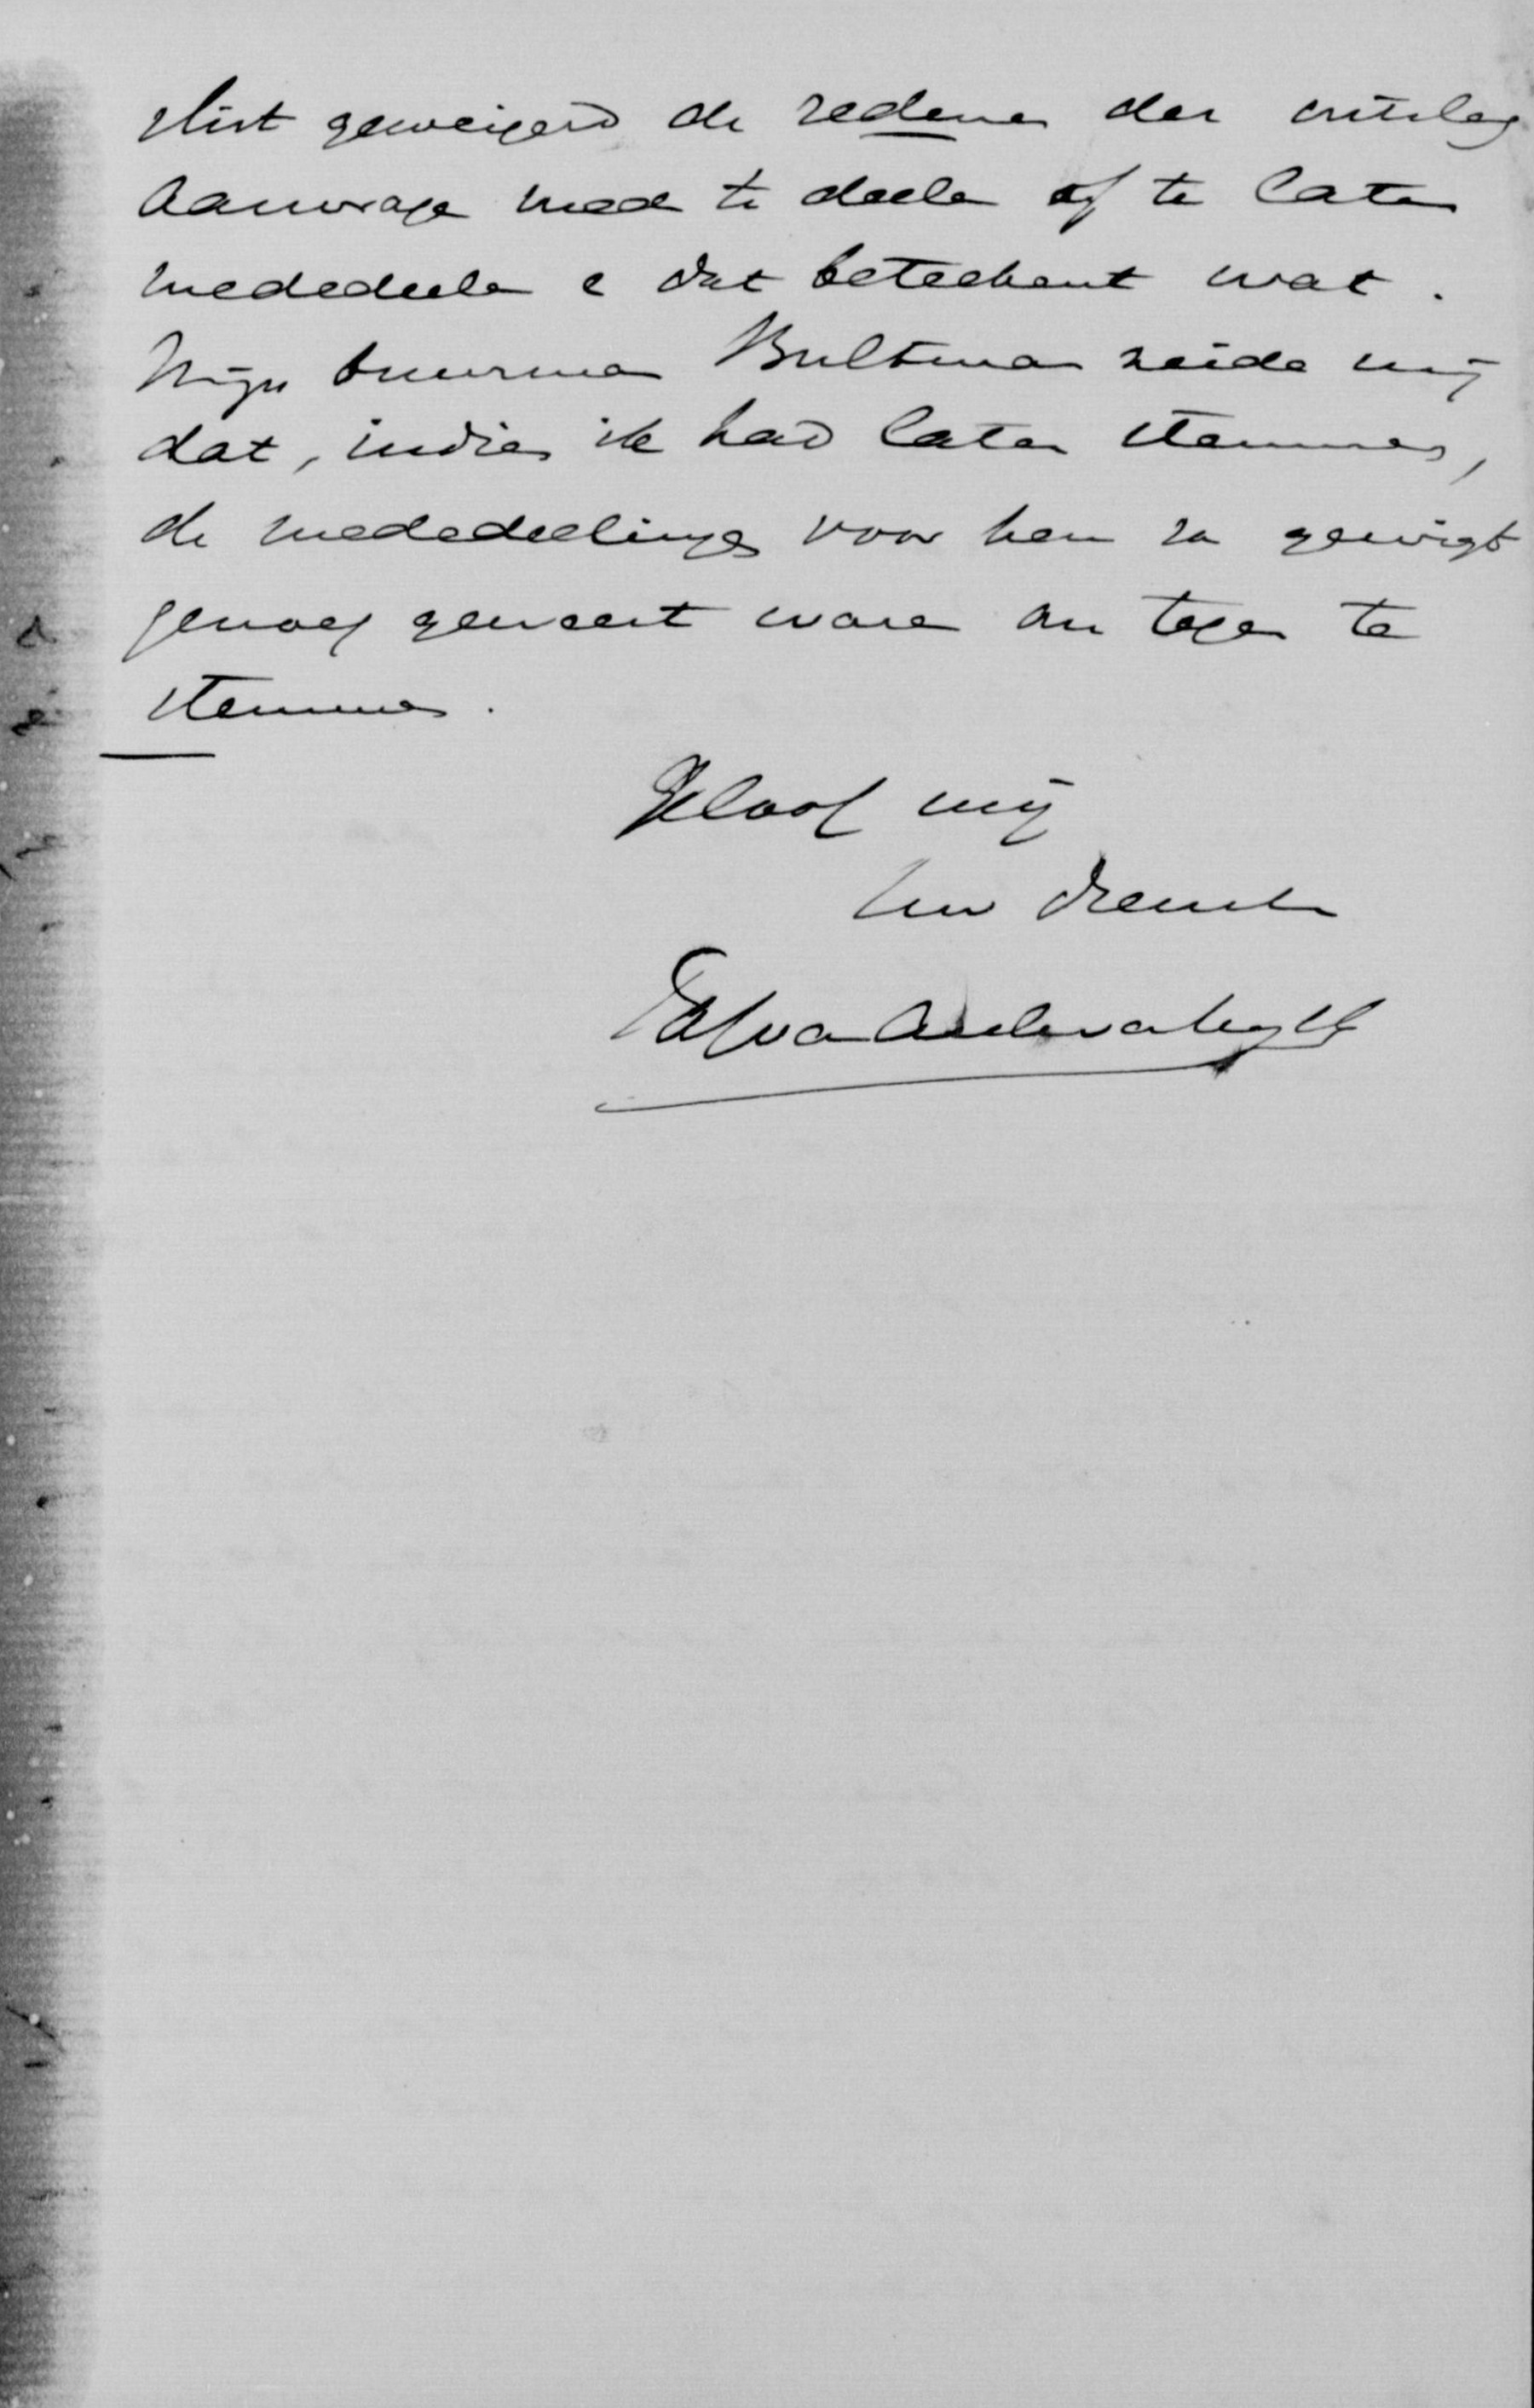 stist geweigerd de redenen der ontslag
aanvrage mede te deelen of te laten
mededeelen & dat beteekent wat.
Mijn buurman Bultman zeide mij
dat, indien ik had laten stemmen,
de mededeelingen voor hem van gewigt
genoeg geweest waren om tegen te
stemmen.
Geloof mij
Uw